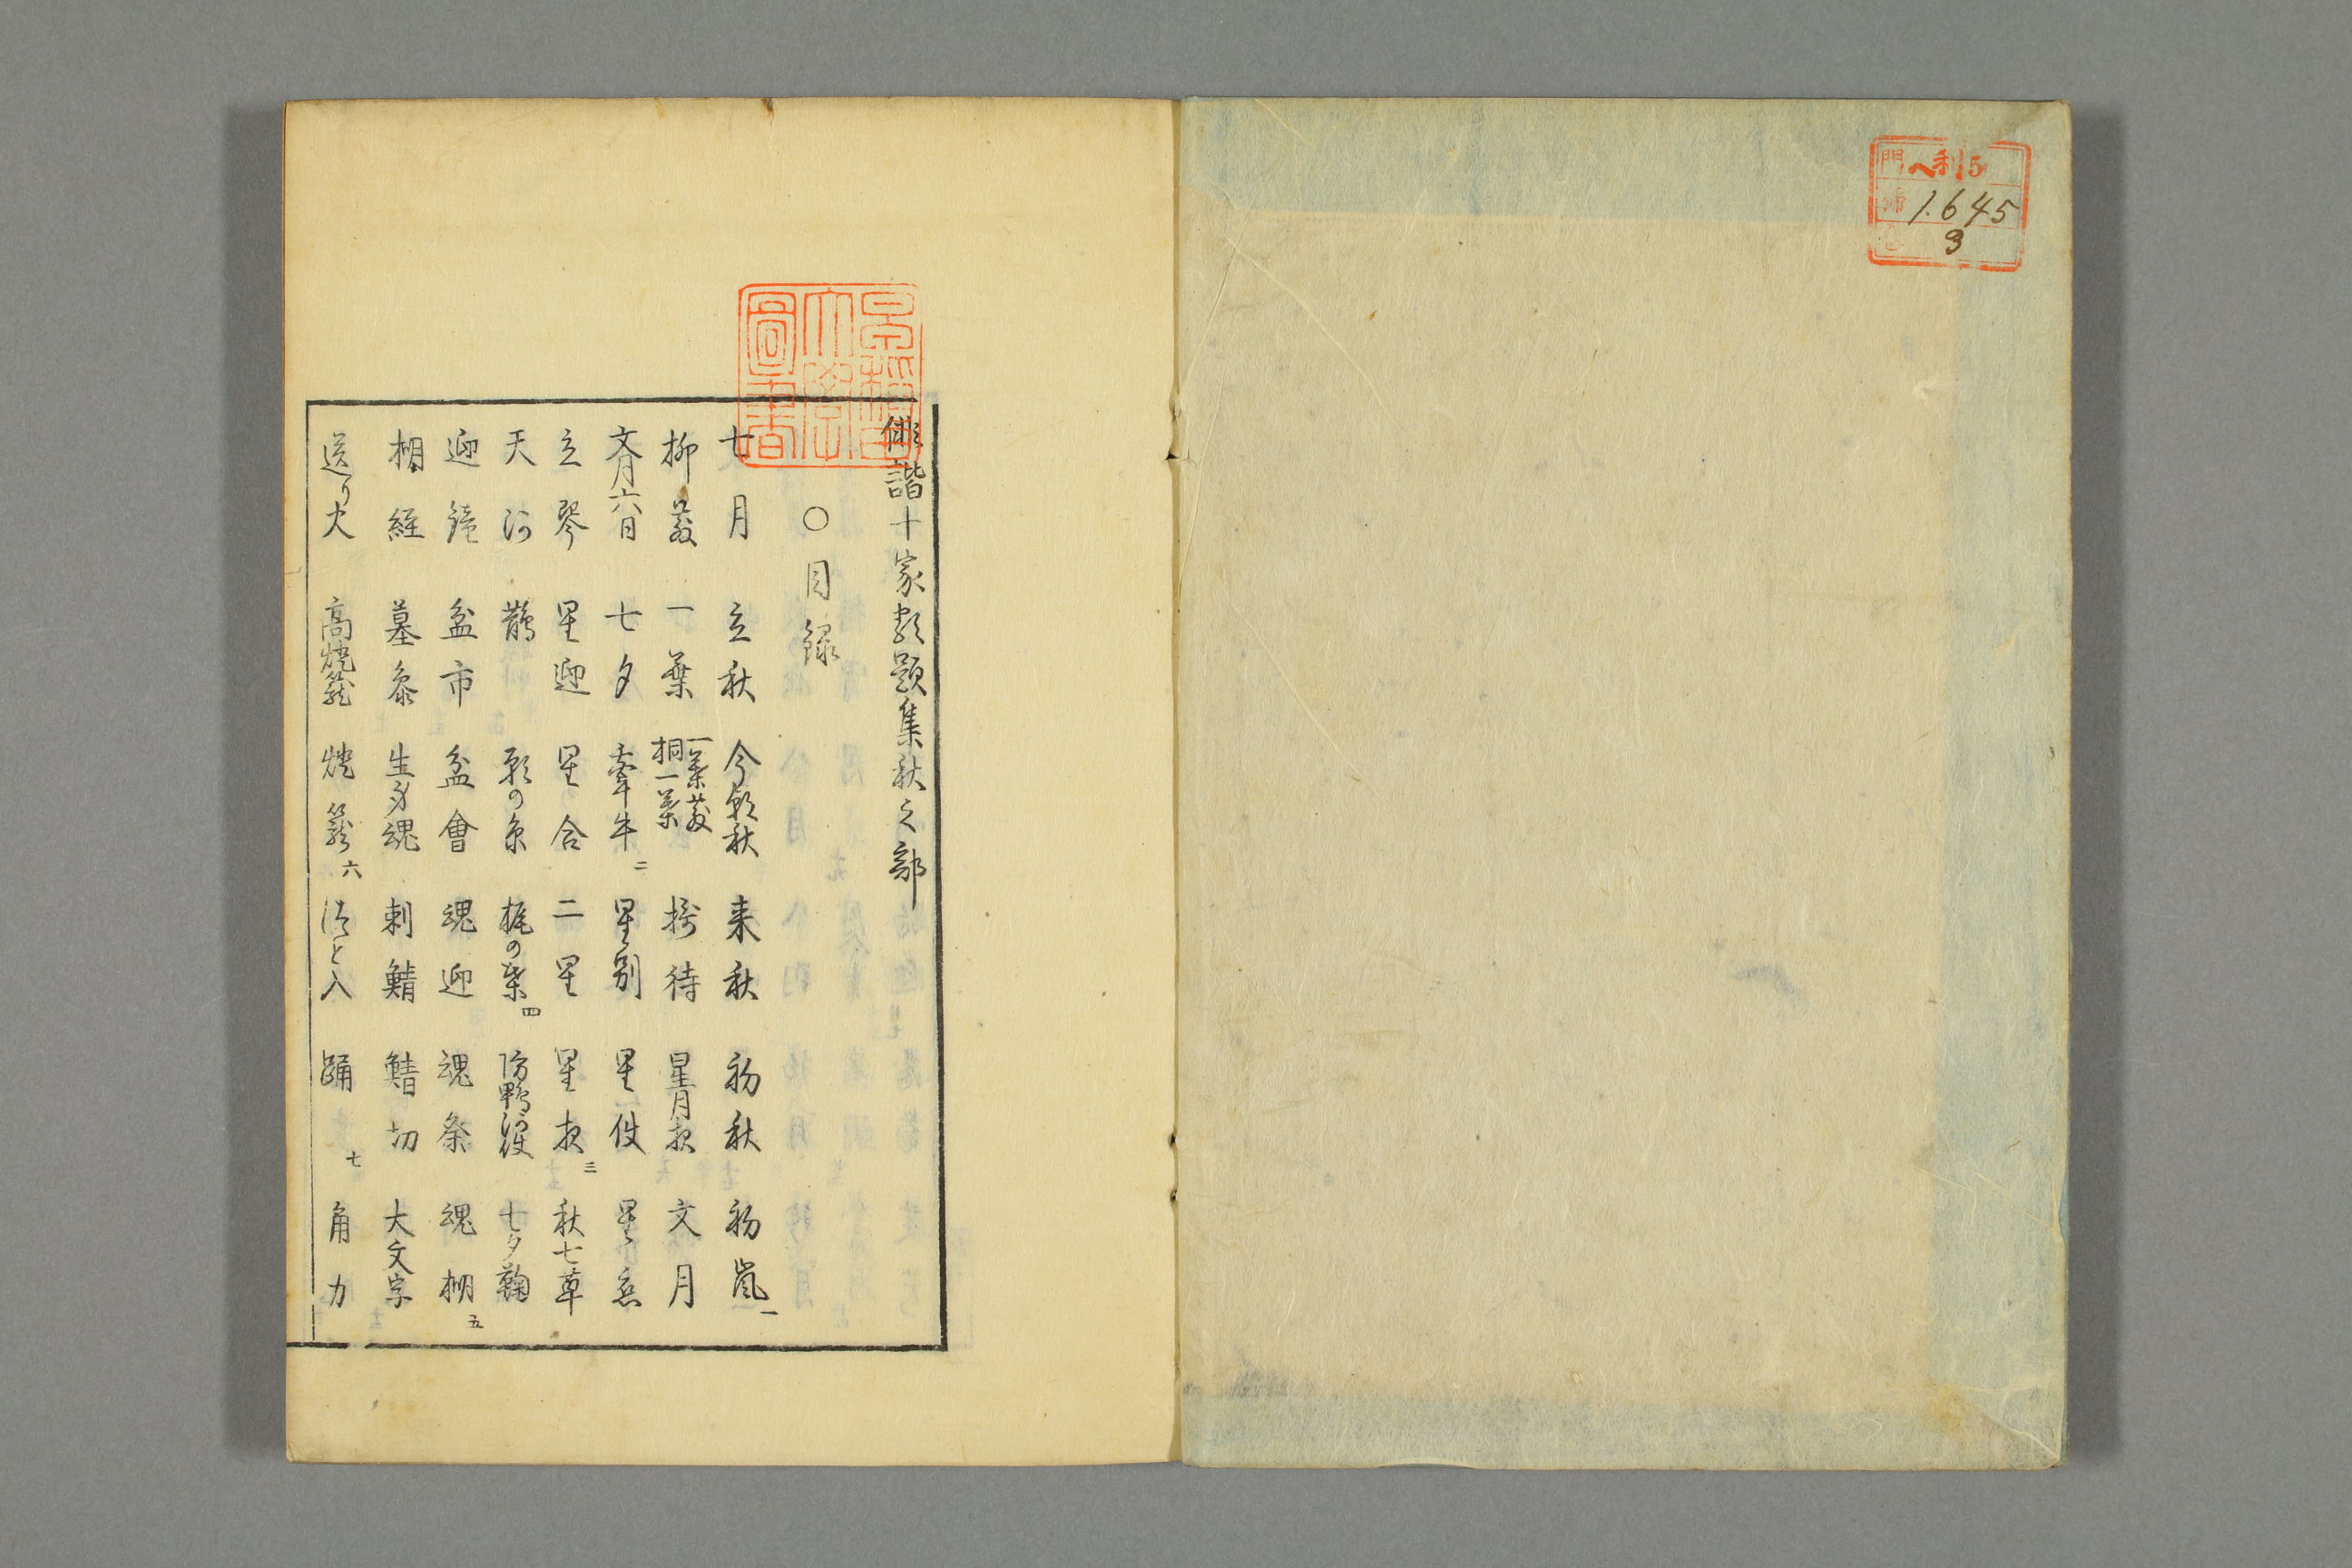 門 ヘ利5
號 1.645
巻 3
早稻田大學圖書
俳諧十家類題集秋之部
〇目録
七月 立秋 今朝秋 来秋 初秋 初嵐 一
柳散 一葉 一葉散 桐一葉 接待 星月夜 文月
文月六日 七夕 牽牛 二 星別 星使 星恋
立琴 星迎 星合 二星 星夜 三 秋七草
天河 鵲 願の糸 梶の葉 四 防鴨河使 七夕鞠
迎鐘 盆市 盆會 魂迎 魂祭 魂棚 五
棚経 墓参 生身魂 刺鯖 鯖切 大文字
送り火 高燈籠 燈籠 六 つと入 踊 七 角力